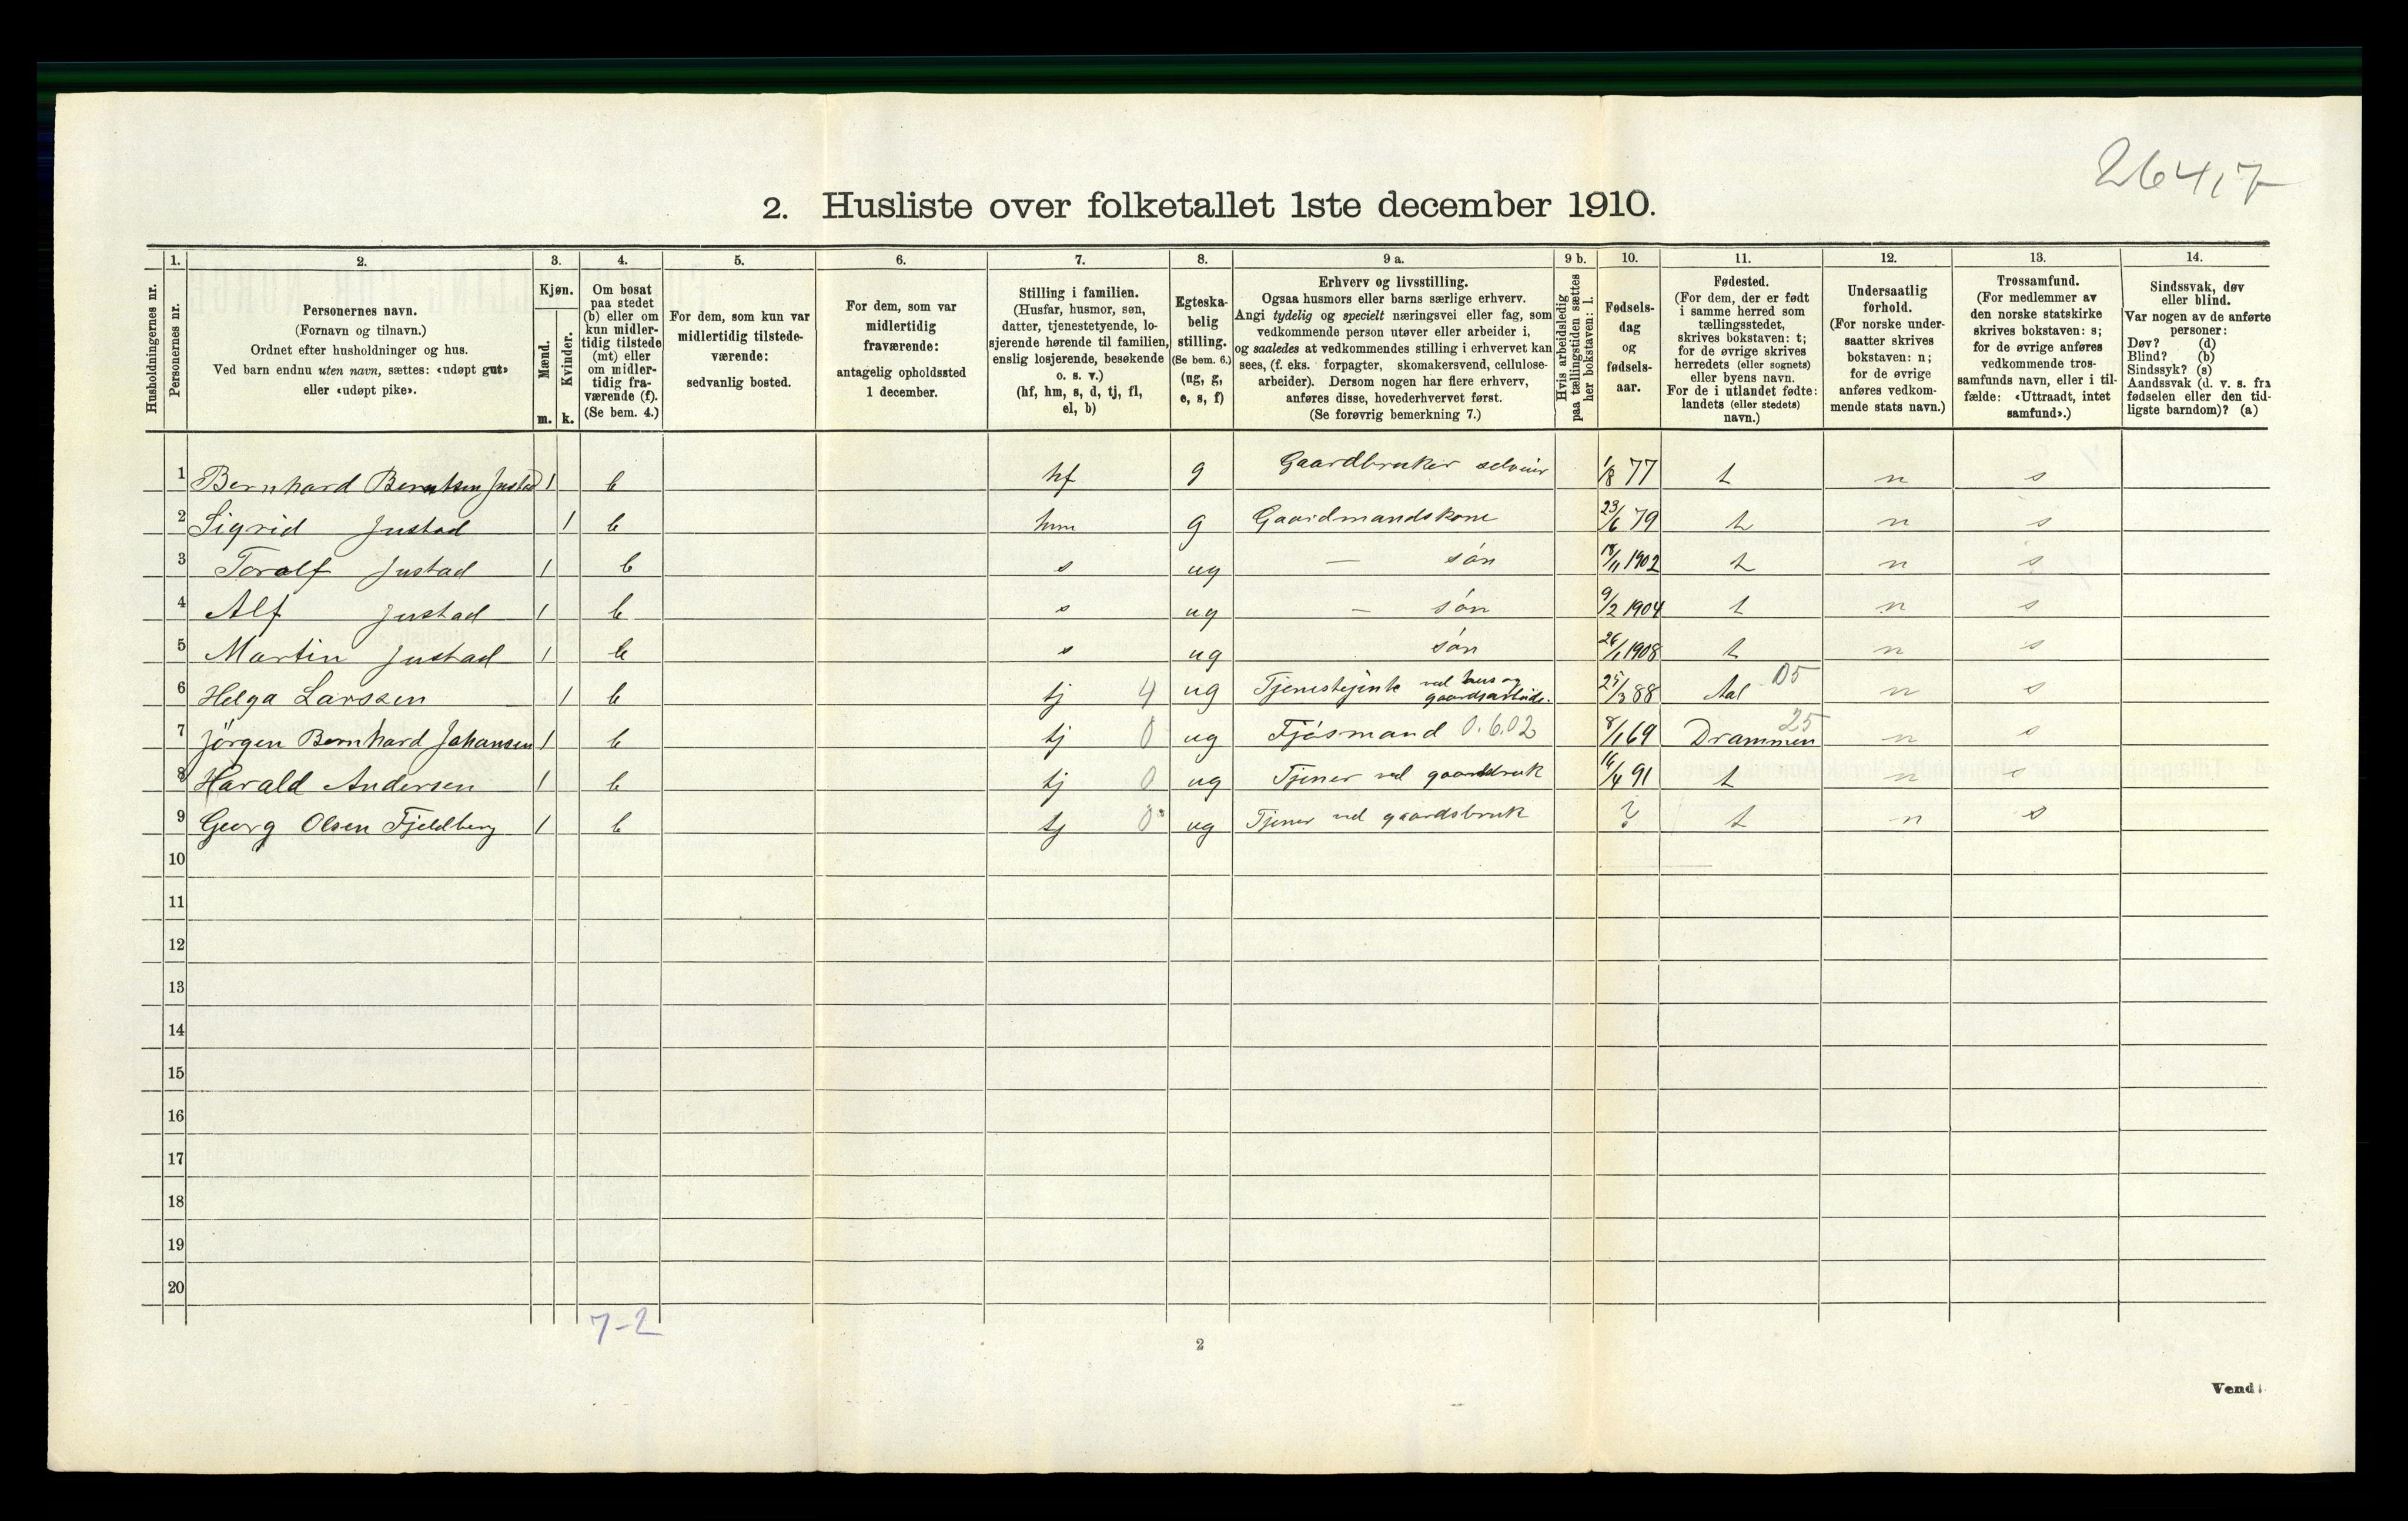 2641,7
2. Husliste over folketallet 1ste december 1910.
Husholdningernes nr.
1. Personernes nr.
2. Personernes navn.
(Fornavn og tilnavn.)
Ordnet efter husholdninger og hus.
Ved barn endnu uten navn, sættes: «udøpt gut»
eller «udøpt pike».
3. Kjøn.
Mænd. m.
Kvinder. k.
4. Om bosat
paa stedet
(b) eller om
kun midler-
tidig tilstede
(mt) eller
om midler-
tidig fra-
værende (f).
(Se bem. 4.)
5. For dem, som kun var
midlertidig tilstede-
værende:
sedvanlig bosted.
6. For dem, som var
midlertidig
fraværende:
antagelig opholdssted
1 december.
7. Stilling i familien.
(Husfar, husmor, søn,
datter, tjenestetyende, lo-
sjerende hørende til familien,
enslig losjerende, besøkende
o. s. v.)
(hf, hm, s, d, tj, fl,
el, b)
8. Egteska-
belig
stilling.
(Se bem. 6.)
(ug, g,
e, s, f)
9 a. Erhverv og livsstilling.
Ogsaa husmors eller barns særlige erhverv.
Angi tydelig og specielt næringsvei eller fag, som
vedkommende person utøver eller arbeider i,
og saaledes at vedkommendes stilling i erhvervet kan
sees, (f. eks. forpagter, skomakersvend, cellulose-
arbeider). Dersom nogen har flere erhverv,
anføres disse, hovederhvervet først.
(Se forøvrig bemerkning 7.)
9 b. Hvis arbeidsledig
paa tællingstiden sættes
her bokstaven: l.
10. Fødsels-
dag
og
fødsels-
aar.
11. Fødested.
(For dem, der er født
i samme herred som
tællingsstedet,
skrives bokstaven: t;
for de øvrige skrives
herredets (eller sognets)
eller byens navn.
For de i utlandet fødte:
landets (eller stedets)
navn.)
12. Undersaatlig
forhold.
(For norske under-
saatter skrives
bokstaven: n;
for de øvrige
anføres vedkom-
mende stats navn.)
13. Trossamfund.
(For medlemmer av
den norske statskirke
skrives bokstaven: s;
for de øvrige anføres
vedkommende tros-
samfunds navn, eller i til-
fælde: «Uttraadt, intet
samfund».)
14. Sindssvak, døv
eller blind.
Var nogen av de anførte
personer:
Døv? (d)
Blind? (b)
Sindssyk? (s)
Aandssvak (d. v. s. fra
fødselen eller den tid-
ligste barndom)? (a)
1 Bernhard Berntsen Justad 1 b hf g Gaardbruker selveier 1/8 77 t n s
2 Sigrid Justad 1 b hm g Gaardmandskone 23/6 79 t n s
3 Toralf Justad 1 b s ug — søn 18/11 1902 t n s
4 Alf Justad 1 b s ug — søn 9/2 1904 t n s
5 Martin Justad 1 b s ug søn 26/1 1908 t n s
6 Helga Larssen 1 b tj 4 ug Tjenestejente ved hus og gaardsarbeide. 25/3 88 Aal 05 n s
7 Jörgen Bernhard Johansen 1 b tj 0 ug Fjósmand 0.6.02 8/1 69 Drammen 25 n s
8 Harald Andersen 1 b tj 0 ug Tjener ved gaardsbruk 16/4 91 t n s
9 Georg Olsen Fjeldberg 1 b tj 0 ug Tjener ved gaardsbruk ? t n s
10
11
12
13
14
15
16
17
18
19
20
7-2
2
Vend!